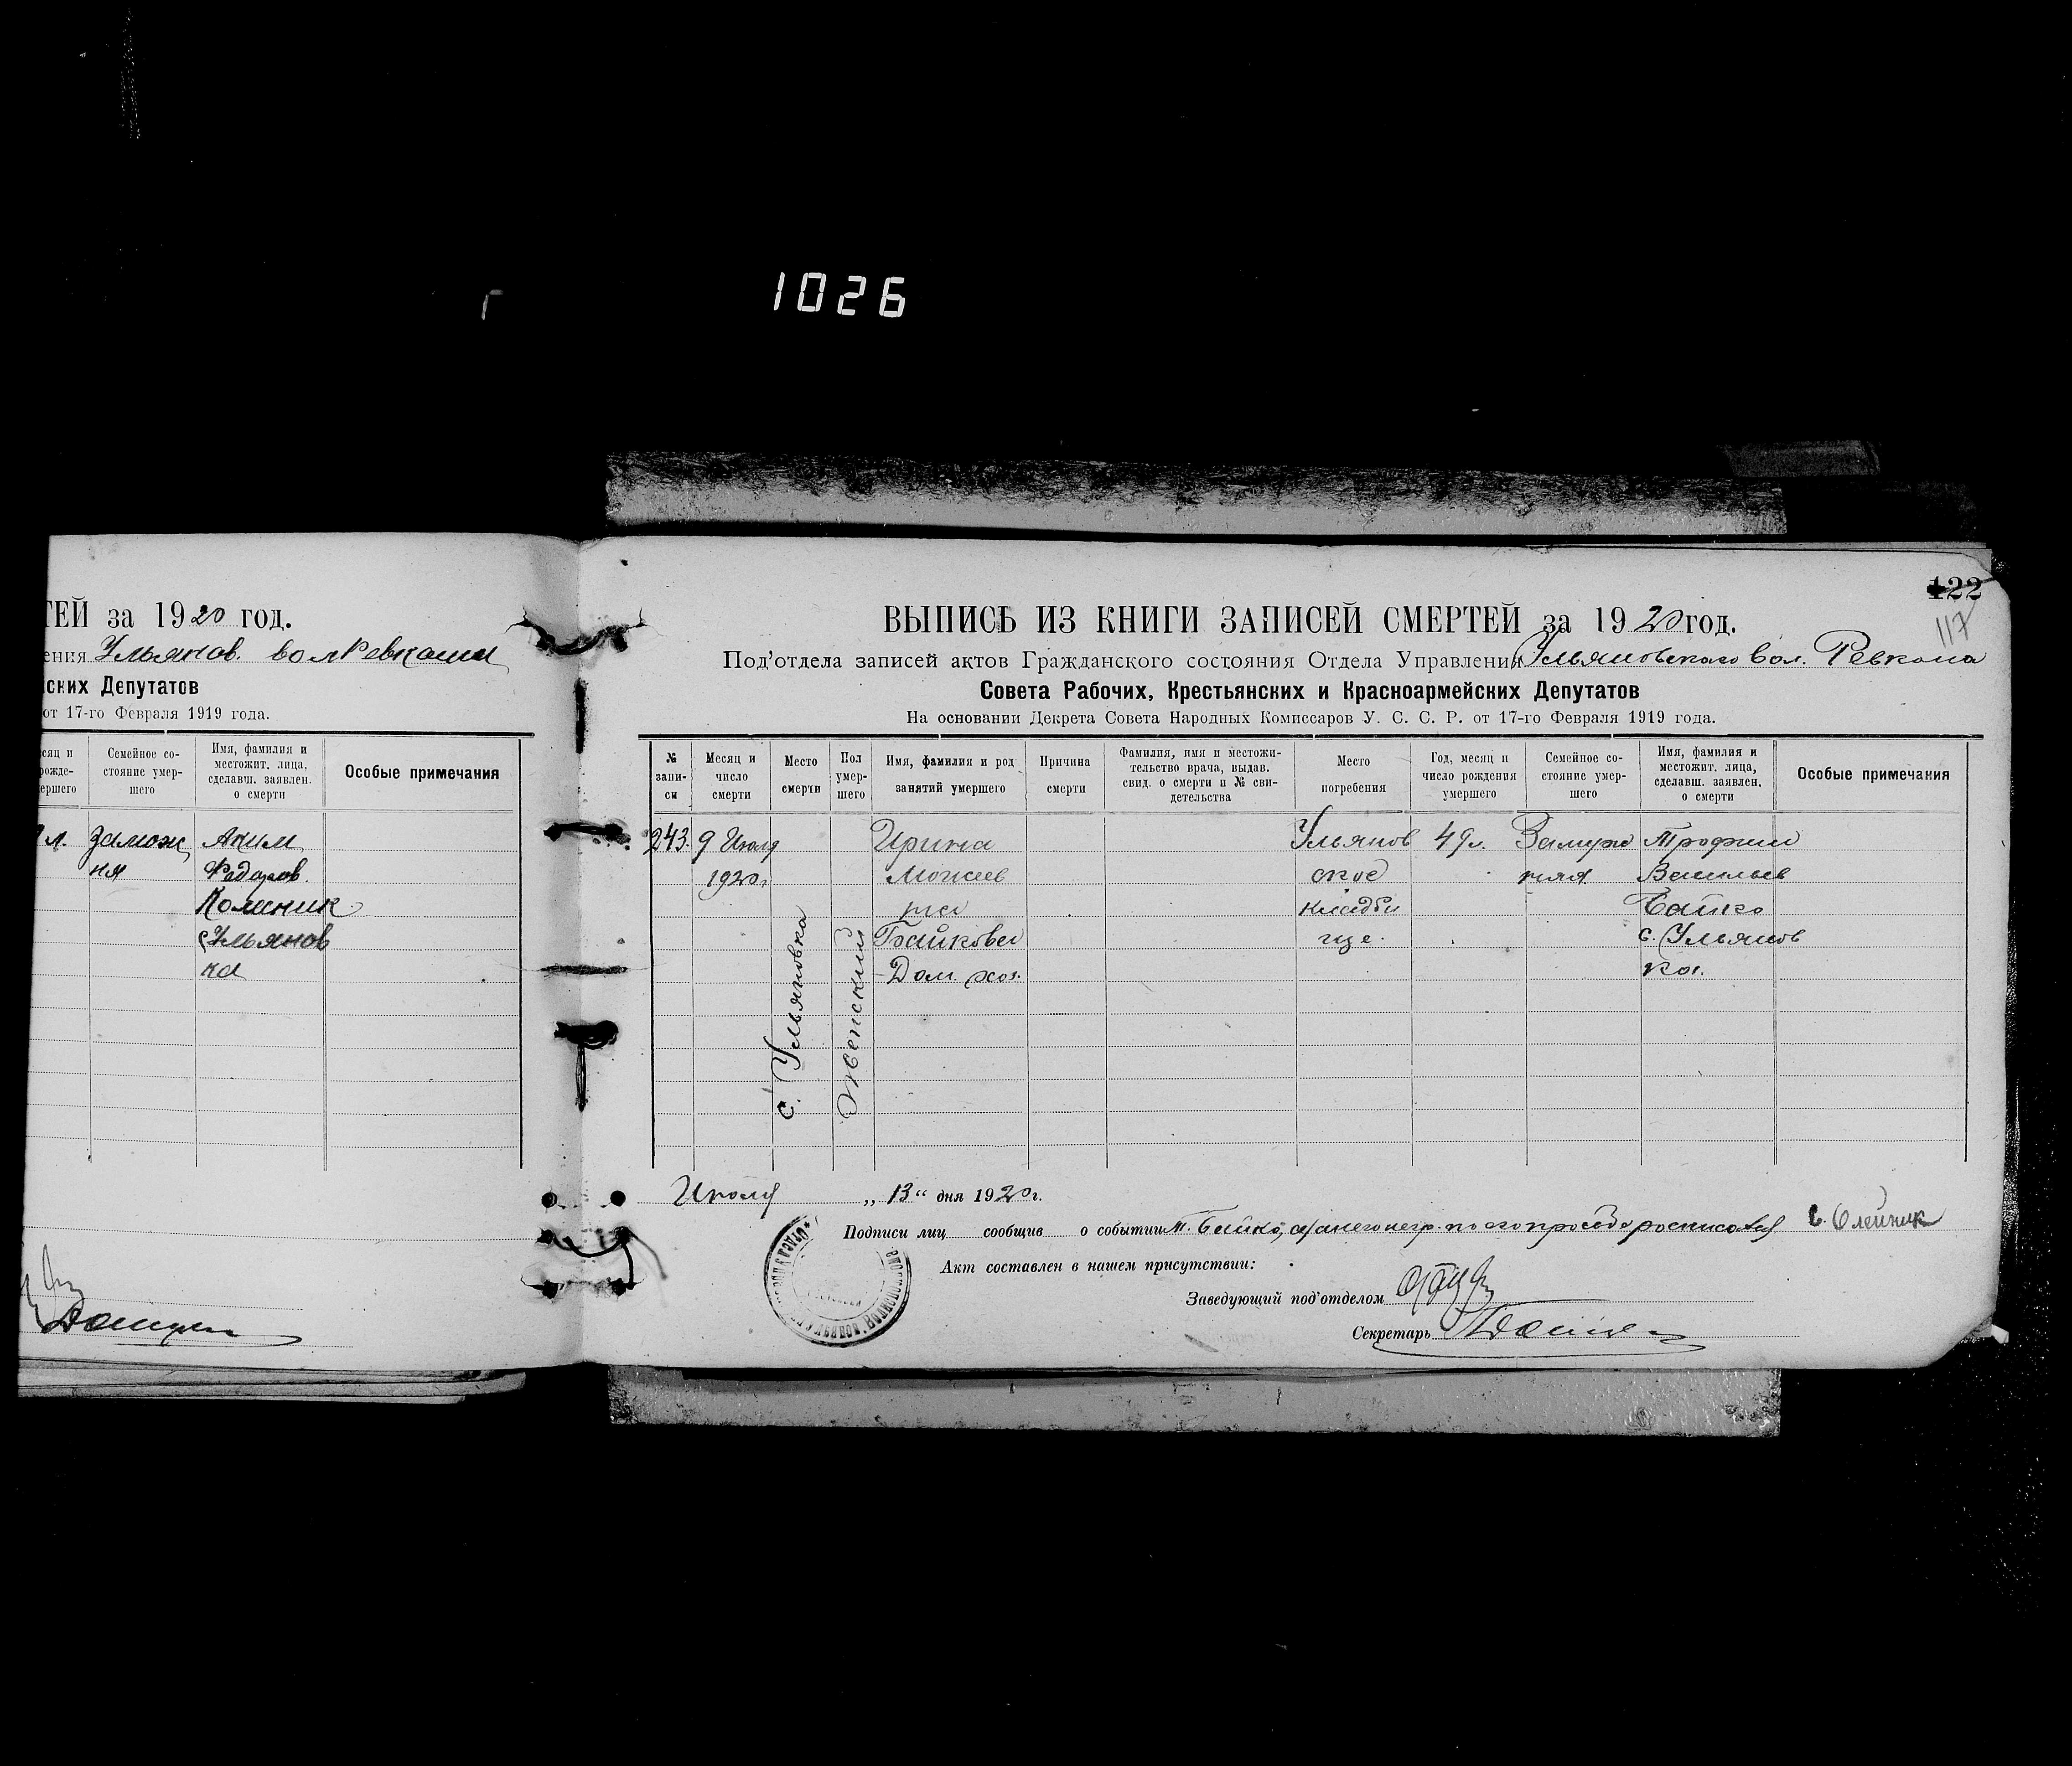 1026
ТЕЙ за 1920 год.
ения Ульянов. волРевкома
йских Депутатов
от 17-го Февраля 1919 года.
сяц и
рожде-
ершего
Семейное со-
стояние умер-
шего
Имя, фамилия и
местожит. лица,
сделавш. заявлен.
о смерти
Особые примечания
л. Замож
ня
Аким
Федоров.
Коленик
с Ульянов
ка
122
117
ВЫПИСЬ ИЗ КНИГИ ЗАПИСЕЙ СМЕРТЕЙ за 1920 год.
Под'отдела записей актов Гражданского состояния Отдела Управления Ульяновского Вол. Ревкома
Совета Рабочих, Крестьянских и Красноармейских Депутатов
На основании Декрета Совета Народных Комиссаров У. С. С. Р. от 17-го Февраля 1919 года.
№
запи-
си
Месяц и
число
смерти
Место
смерти
Пол
умер-
шего
Имя, фамилия и род
занятий умершего
Причина
смерти
Фамилия, имя и местожи-
тельство врача, выдав.
свид. о смерти и № сви-
детельства
Место
погребения
Год, месяц и
число рождения
умершего
Семейное со-
стояние умер-
шего
Имя, фамилия и
местожит. лица,
сделавш. заявлен.
о смерти
Особые примечания
243.
9 Июля
1920г
с. Ульяновка
Женский
Ирина
Моисеев
на
Байкова
Дом. хоз.
Ульянов
ское
кладби
ще.
49л.
Замуж
няя
Трофим
Васильев
Байко
с. Ульянов
ка.
Июля „13“ дня 1920г.
Подписи лиц сообщив о событии Т. Байко, а за него негр. по его прозьбе росписался С. Олейник
Акт составлен в нашем присутствии:
Заведующий под'отделом
Секретарь